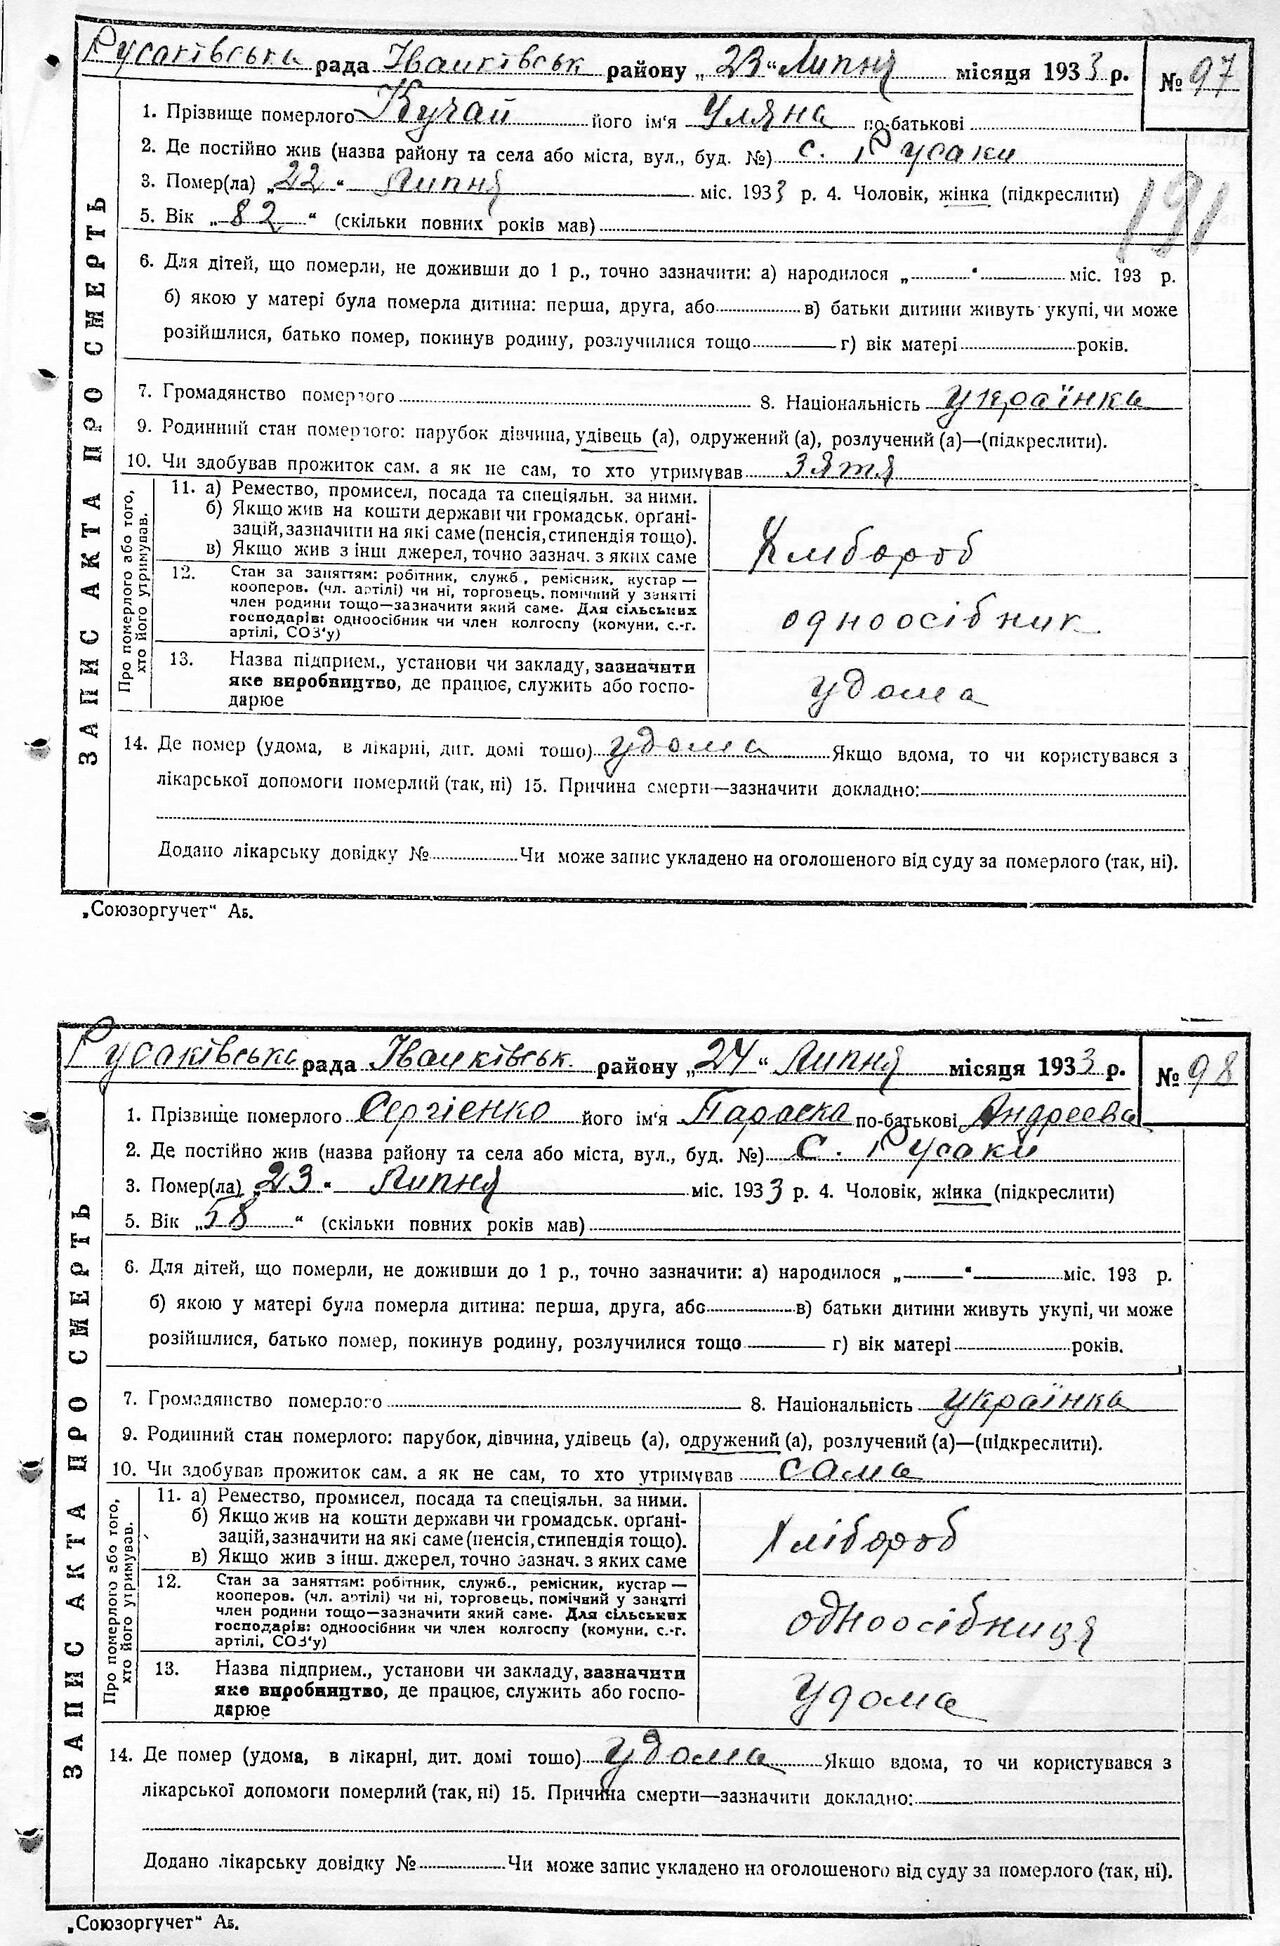 Русаківська рада Іванківськ району „23“ Липня місяця 1933 р. № 97
1. Прізвище померлого Кучай його ім'я Уляна по-батькові
2. Де постійно жив (назва району та села або міста, вул., буд. №) с. Русаки
3. Помер(ла) „22“ Липня міс. 1933 р. 4. Чоловік, жінка (підкреслити)
191
5. Вік „82“ (скільки повних років мав)
6. Для дітей, що померли, не доживши до 1 р., точно зазначити: а) народилося „ “ міс. 193 р.
б) якою у матері була померла дитина: перша, друга, або в) батьки дитини живуть укупі, чи може
розійшлися, батько помер, покинув родину, розлучилися тощо г) вік матері років.
7. Громадянство померлого 8. Національність українка
9. Родинний стан померлого: парубок дівчина, удівець (а), одружений (а), розлучений (а)—(підкреслити).
10. Чи здобував прожиток сам. а як не сам, то хто утримував зятя
ЗАПИС АКТА ПРО СМЕРТЬ
Про померлого або того,
хто його утримував.
11. а) Ремество, промисел, посада та спеціяльн. за ними.
б) Якщо жив на кошти держави чи громадськ. орґані-
зацій, зазначити на які саме (пенсія, стипендія тощо).
в) Якщо жив з інш джерел, точно зазнач. з яких саме
Хлібороб
12. Стан за заняттям: робітник, служб., ремісник, кустар—
кооперов. (чл. артілі) чи ні, торговець, помічний у занятті
член родини тощо—зазначити який саме. Для сільських
господарів: одноосібник чи член колгоспу (комуни, с.-г.
артілі, СОЗ'у)
одноосібник
13. Назва підприєм., установи чи закладу, зазначити
яке виробництво, де працює, служить або госпо-
дарює
удома
14. Де помер (удома, в лікарні, дит. домі тощо) удома Якщо вдома, то чи користувався з
лікарської допомоги померлий (так, ні) 15. Причина смерти—зазначити докладно:
Додано лікарську довідку № Чи може запис укладено на оголошеного від суду за померлого (так, ні).
„Союзоргучет“ Аб.
Русаківська рада Іванківськ. району „24“ Липня місяця 1933 р. № 98
1. Прізвище померлого Сергієнко його ім'я Параска по-батькові Андреєва
2. Де постійно жив (назва району та села або міста, вул., буд. №) с. Русаки
3. Помер(ла) „23“ Липня міс. 1933 р. 4. Чоловік, жінка (підкреслити)
5. Вік „58“ (скільки повних років мав)
6. Для дітей, що померли, не доживши до 1 р., точно зазначити: а) народилося „ “ міс. 193 р.
б) якою у матері була померла дитина: перша, друга, або в) батьки дитини живуть укупі, чи може
розійшлися, батько помер, покинув родину, розлучилися тощо г) вік матері років.
7. Громадянство померлого 8. Національність українка
9. Родинний стан померлого: парубок, дівчина, удівець (а), одружений (а), розлучений (а)—(підкреслити).
10. Чи здобував прожиток сам. а як не сам, то хто утримував сама
ЗАПИС АКТА ПРО СМЕРТЬ
Про померлого або того,
хто його утримував.
11. а) Ремество, промисел, посада та спеціяльн. за ними.
б) Якщо жив на кошти держави чи громадськ. орґані-
зацій, зазначити на які саме (пенсія, стипендія тощо).
в) Якщо жив з інш. джерел, точно зазнач. з яких саме
Хлібороб
12. Стан за заняттям: робітник, служб., ремісник, кустар—
кооперов. (чл. артілі) чи ні, торговець, помічний у занятті
член родини тощо—зазначити який саме. Для сільських
господарів: одноосібник чи член колгоспу (комуни, с.-г.
артілі, СОЗ'у)
одноосібниця
13. Назва підприєм., установи чи закладу, зазначити
яке виробництво, де працює, служить або госпо-
дарює
удома
14. Де помер (удома, в лікарні, дит. домі тошо) удома Якшо вдома, то чи користувався з
лікарської допомоги померлий (так, ні) 15. Причина смерти—зазначити докладно:
Додано лікарську довідку № Чи може запис укладено на оголошеного від суду за померлого (так, ні).
„Союзоргучет“ Аб.